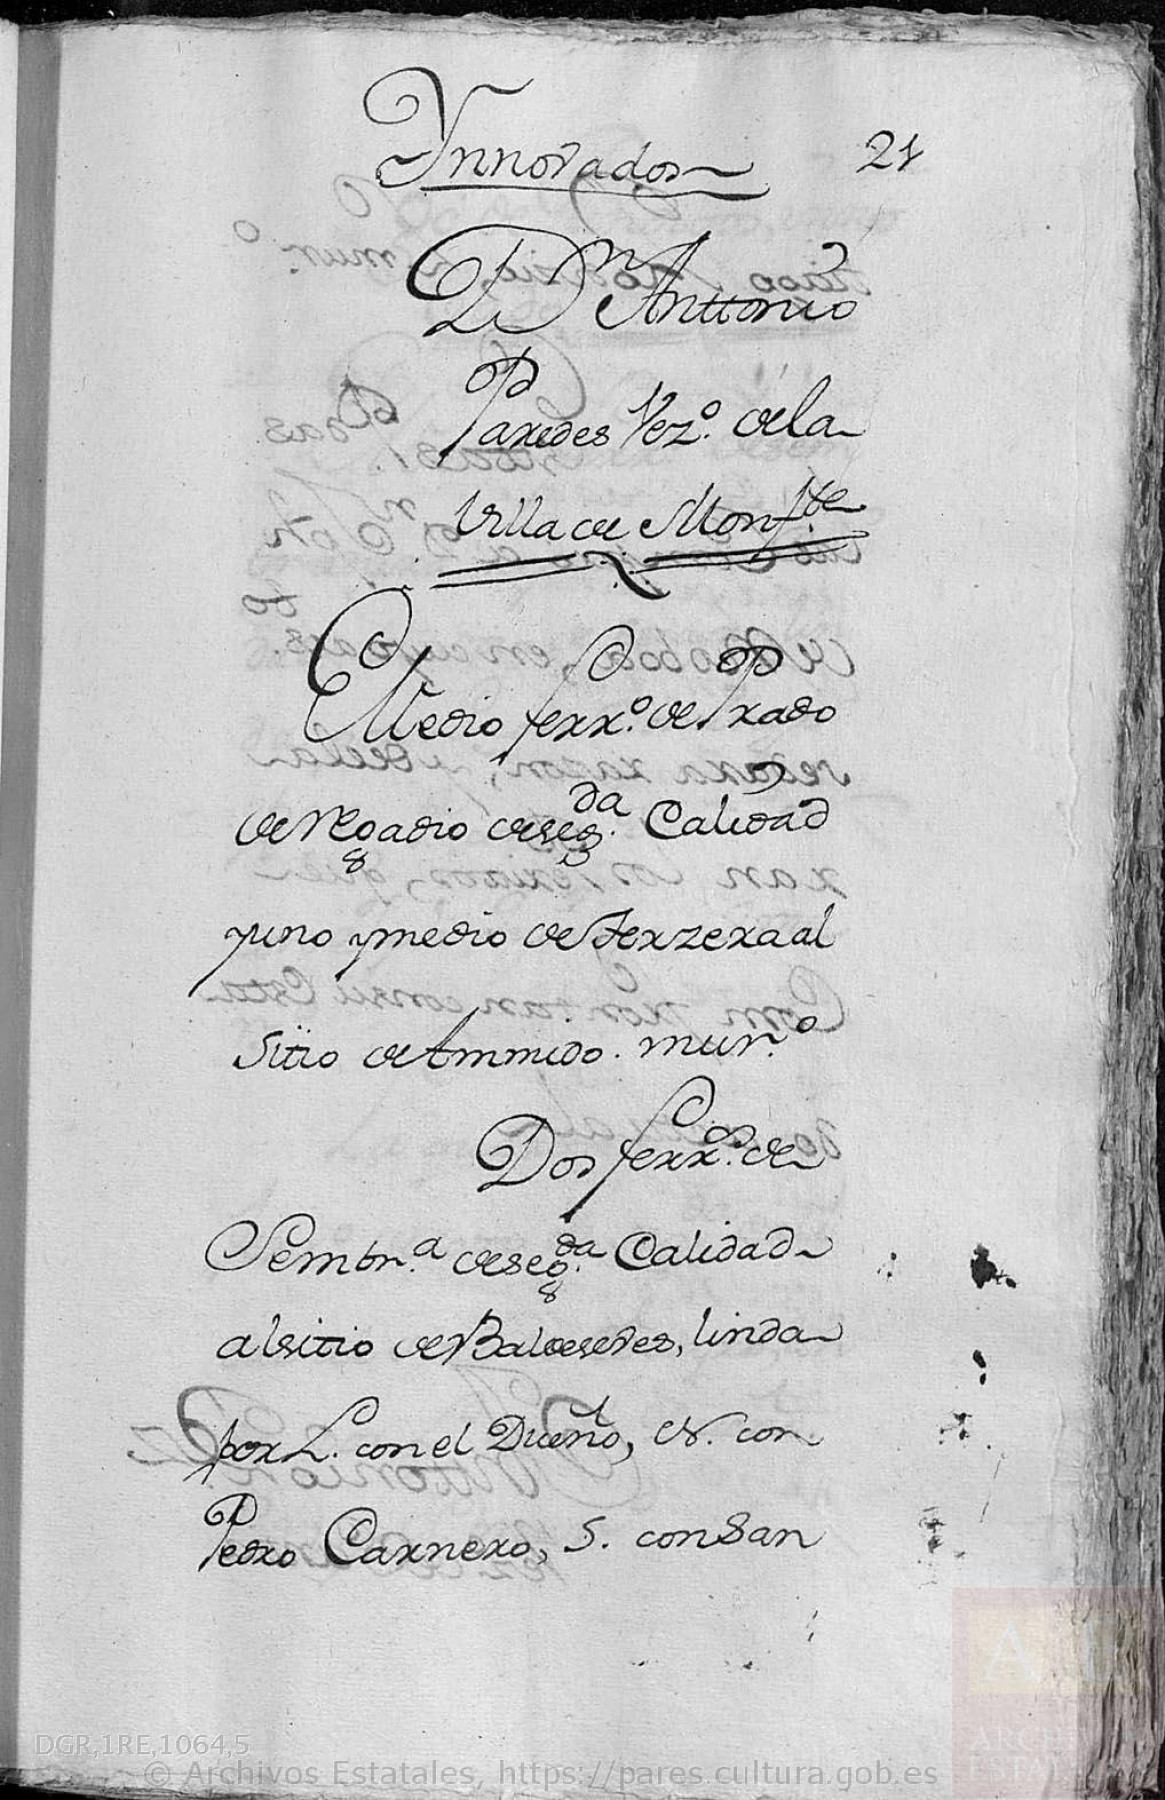 Ynnovados
21
Dn Anttonio
Paredes Vezo. de la
Villa de Monfte
Medio ferro. de Prado
de Regadio de segda. Calidad
y uno y medio de terzera al
Sitio de Ammido. murdo.
Dos ferros. de
Sembra. de segda. Calidad
al sitio de Baldesedes, linda
por L. con el Dueño, N. con
Pedro Carnero, S. con San
DGR,1RE,1064,5
© Archivos Estatales, https://pares.cultura.gob.es